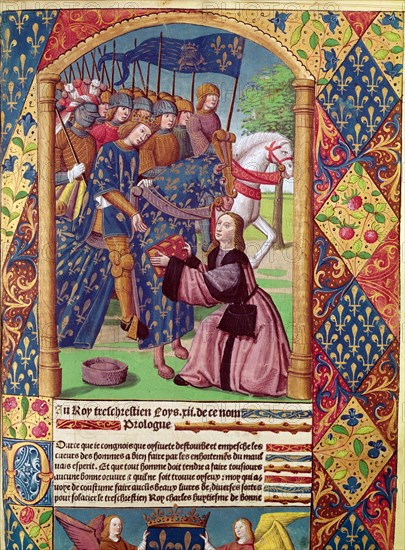 Au Roy treschrestien Loys.xii.de ce nom
Prologue
Parce que ie congnois que oysiuete destourbe et empesche les
cueurs des hommes a bien faire par les enhortemens du mau
uais esperit. Et que tout homme doit tendre a faire tousiours
aucune bonne oeuure et quil ne soit trouue oyseux: moy qui a
uoye de coustume faire aucuns beaux liures de diuerses sortes
pour solacier le treschrestien Roy charles huytiesme de bonne